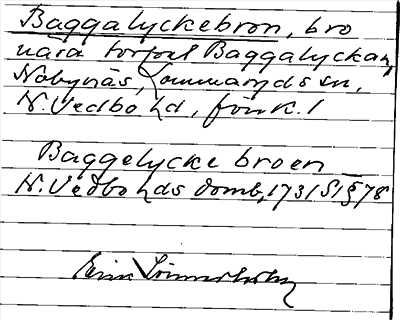 Baggalyckebron, bro
nära torpet Baggalyckan,
Nobynäs, Lommaryds sn,
N. Vedbo hd, Jönk. l
Baggelycke broen
N. Vedbo hds domb, 1731 S1 § 78
Erik